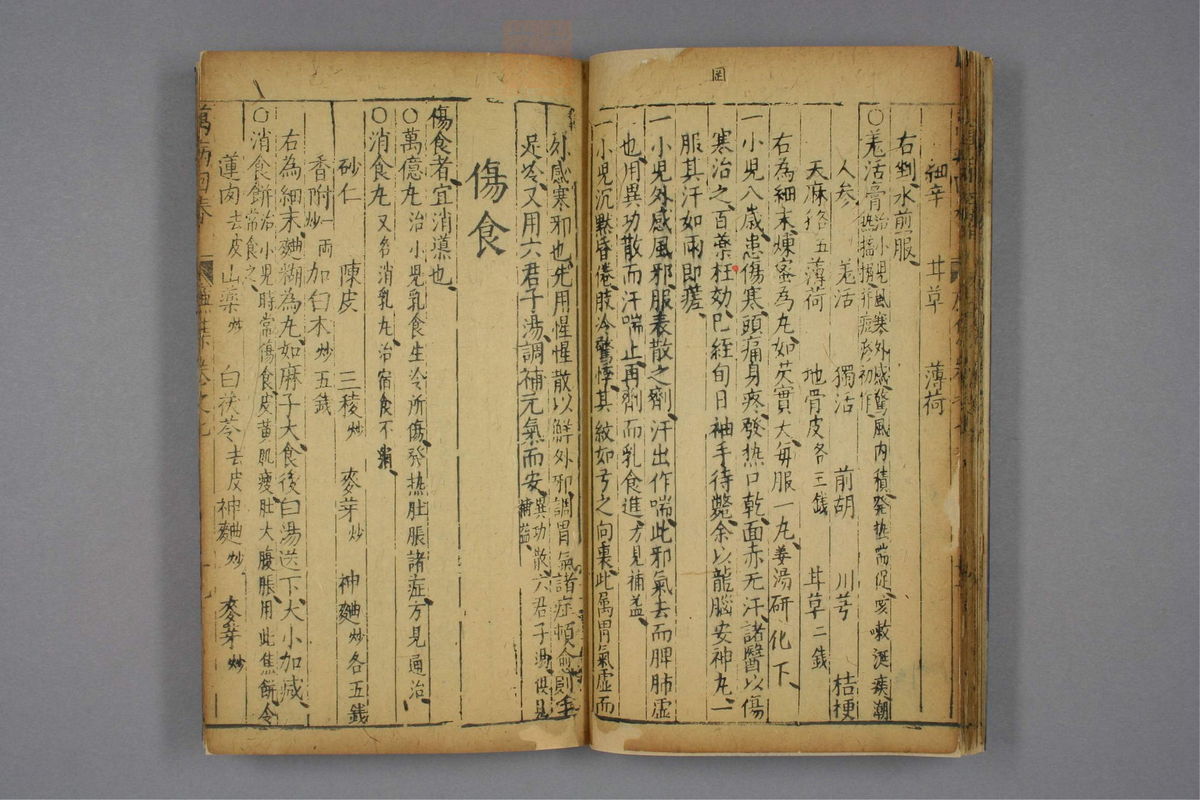 罡
細辛　甘草　薄荷
右剉水煎服
○羗活膏治小兒風寒外感驚風内積發热喘促咳嗽涎痰潮热搐搦并痘疹初作
人参　羗活　獨活　前胡　川芎　桔梗
天麻各五　薄荷　地骨皮各三錢　甘草二錢
右為細末煉蜜為丸如芡實大每服一丸姜湯研化下
一小児八歳患傷寒頭痛身疼發热口乾面赤无汗諸醫以傷
寒治之百薬枉効已經旬日袖手待斃余以龍腦安神丸一
服其汗如雨即瘥
一小児外感風邪服表散之劑汗出作喘此邪氣去而脾肺虚
也用異功散而汗喘止再劑而乳食進方見補益
一小児沉黙昏倦肢冷驚悸其紋如弓之向裏此属胃氣虚而
外感寒邪也先用惺惺散以鮮外邪調胃氣諸症頓愈但手
足冷又用六君子湯調補元氣而安異功散六君子湯俱見補益
傷食
傷食者宜消導也
○萬億丸治小児乳食生冷所傷發热肚脹諸症方見通治
○消食丸又名消乳丸治宿食不消
砂仁　陳皮　三稜炒　麥芽炒　神麯炒各五錢
香附炒一両　加白木炒五錢
右為細末麯糊為丸如麻子大食後白湯送下大小加减
○消食餅治小児時常傷食皮黄肌瘦肚大腹脹用此焦餅令常食之
蓮肉去皮　山藥炒　白茯苓去皮　神麯炒　麥芽炒
萬病回春